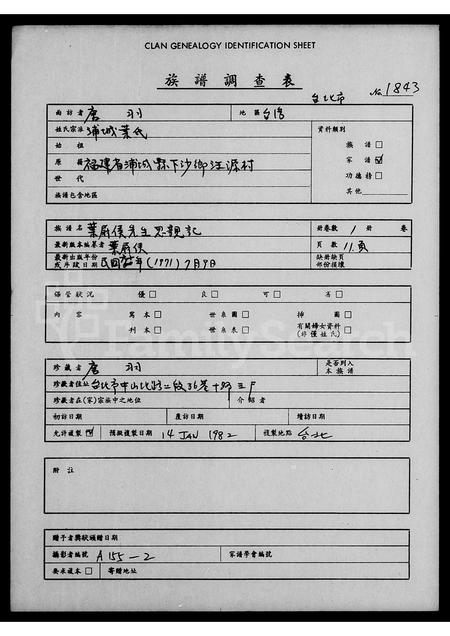 CLAN GENEALOGY IDENTIFICATION SHEET
族譜調查表
台北市 No 1843
面訪者 唐羽 地區 台灣
姓氏宗派 浦城葉氏 資料類別
始祖 族譜 □
原籍 福建省浦城縣下沙鄉汪源村 家譜 ☑
世代 功德榜 □
族譜包含地區 其他
族譜名 葉蔚侯先生思親記 冊卷數 1 冊卷
最新版本編纂者 葉蔚侯 頁數 11頁
最新出版年份 缺冊缺頁
或手跋日期 民國 年(1971)7月9日 部份損壞
保管狀況 優 □ 良 □ 可 □ 否 □
內容 寫本 □ 世系圖 □ 插圖 □
刊本 □ 世系表 □ 有關婦女資料 □
(非僅姓氏)
珍藏者 唐羽 是否列入
本族譜
珍藏者住址 台北市中山北路二段36巷十號三F
珍藏者在(家)宗族中之地位 介紹者
初訪日期 產訪日期 續訪日期
允許複製 ☑ 預擬複製日期 14 JAN 1982 複製地點 台北
附註
贈予者獎狀頒贈日期
攝影者編號 A 155-2 家譜學會編號
要求複本 □ 寄贈地址
FamilySearch